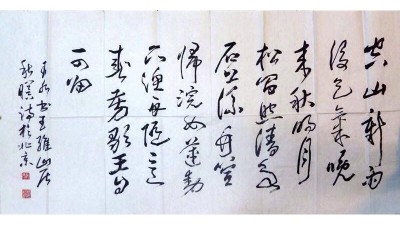 空山新雨
後天氣晚
来秋明月
松间照清泉
石上流竹喧
歸浣女蓮動
下渔舟随意
春芳歇王自
可留
书王維山居
秋暝诗於北京